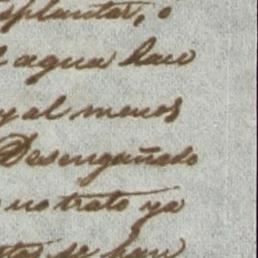 splantar, o
l agua hace
y al menos
Desengañado
no trato ya
tas se han